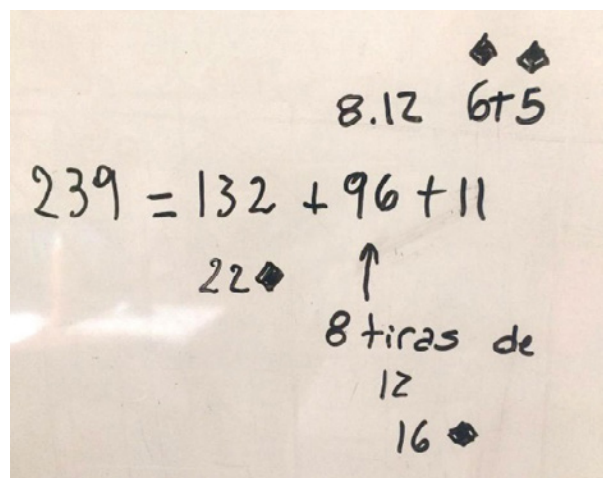 8.12 6+5
239 = 132 + 96 + 11
22
8 tiras de
12
16